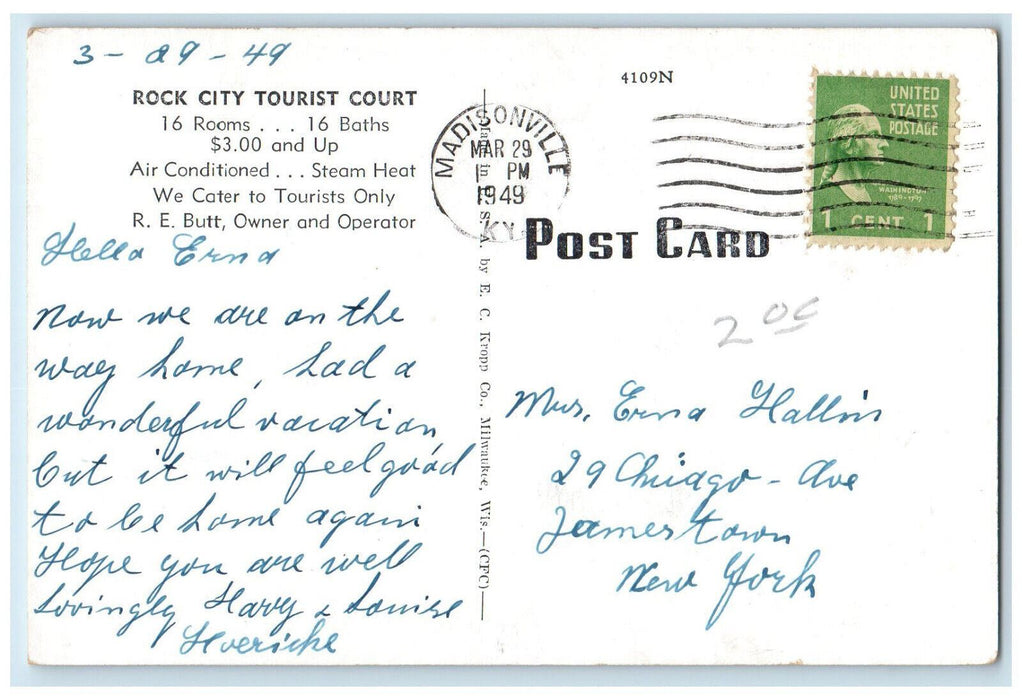 3 - 29 - 49
ROCK CITY TOURIST COURT
16 Rooms . . . 16 Baths
$3.00 and Up
Air Conditioned . . . Steam Heat
We Cater to Tourists Only
R. E. Butt, Owner and Operator
Hello Erna
Now we are on the
way home, had a
wonderful vacation,
but it will feel good
to be home again
Hope you are well
Lovingly Harry & Louise
Made in U. S. A. by E. C. Kropp Co., Milwaukee, Wis.—(CPC)
4109N
MADISONVILLE
MAR 29
1 PM
1949
KY.
UNITED
STATES
POSTAGE
WASHINGTON
1789-1797
1 CENT 1
POST CARD
2 00
Mrs. Erna Hallin
29 Chicago - Ave
Jamestown
New York